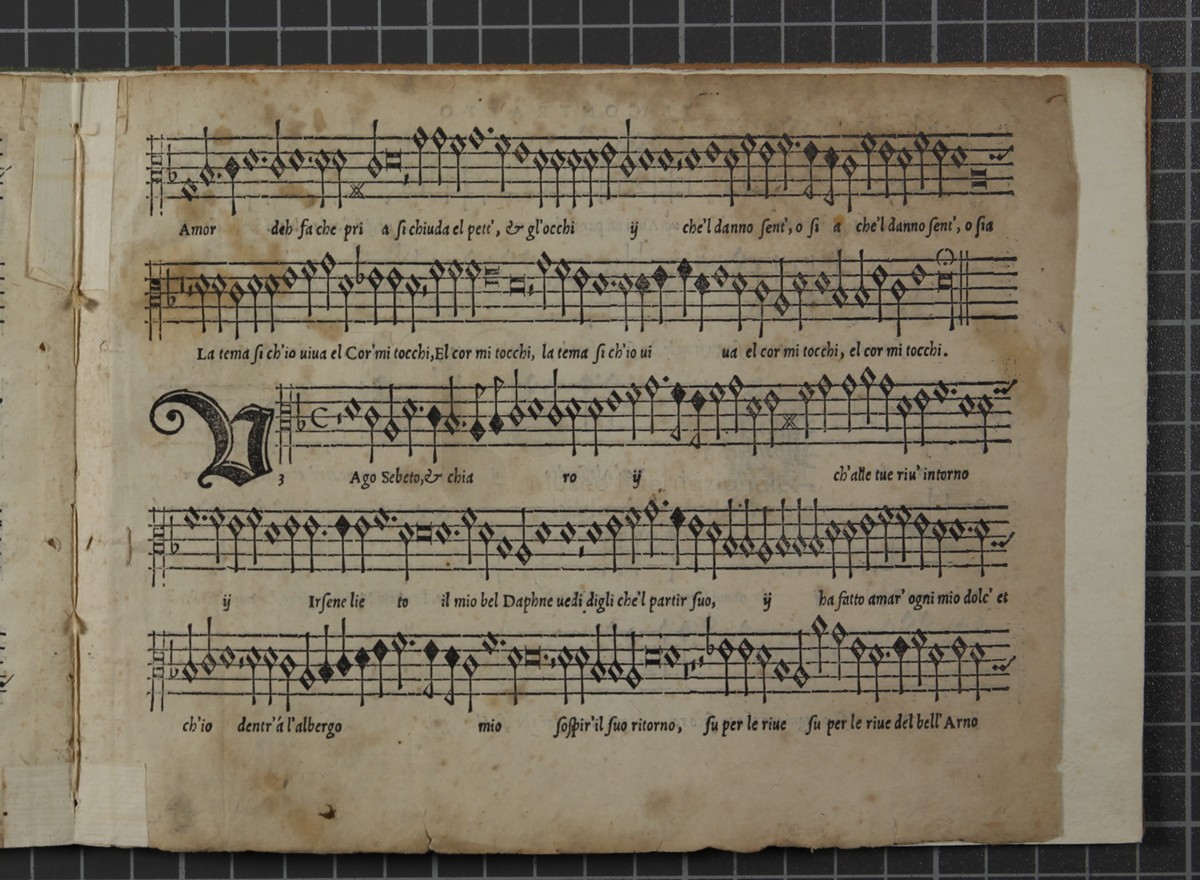 Amor deh fa che pri a si chiuda el pett', & gl'occhi ij che'l danno sent', o si a che'l danno sent', o sia
La tema si ch'io uiua el Cor'mi tocchi, El cor mi tocchi, la tema si ch'io ui ua el cor mi tocchi, el cor mi tocchi.
V
3 Ago Sebeto, & chia ro ij ch'alle tue riu' intorno
ij Irsene lie to il mio bel Daphne uedi digli che'l partir suo, ij ha fatto amar' ogni mio dolc' et
ch'io dentr'á l'albergo mio sospir'il suo ritorno, su per le riue su per le riue del bell' Arno